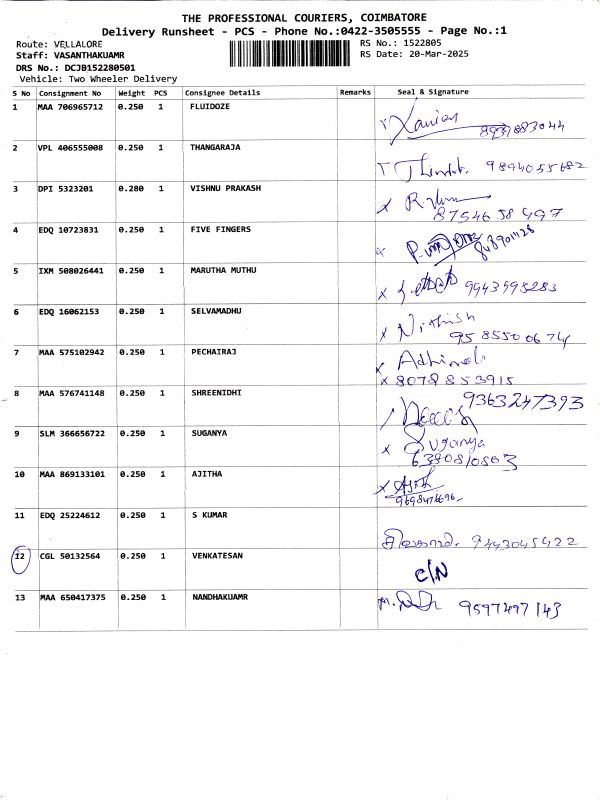 THE PROFESSIONAL COURIERS, COIMBATORE
Delivery Runsheet - PCS - Phone No.:0422-3505555 - Page No.:1
Route: VELLALORE RS No.: 1522805
Staff: VASANTHAKUAMR RS Date: 20-Mar-2025
DRS No.: DCJB152280501
Vehicle: Two Wheeler Delivery
S No Consignment No Weight PCS Consignee Details Remarks Seal & Signature
1 MAA 706965712 0.250 1 FLUIDOZE
2 VPL 406555008 0.250 1 THANGARAJA
9894055682
3 DPI 5323201 0.280 1 VISHNU PRAKASH
8754638497
4 EDQ 10723831 0.250 1 FIVE FINGERS
5 IXM 508026441 0.250 1 MARUTHA MUTHU
x 9943995283
6 EDQ 16062153 0.250 1 SELVAMADHU
x Nithish
9585500674
7 MAA 575102942 0.250 1 PECHAIRAJ
x
x 8078853915
8 MAA 576741148 0.250 1 SHREENIDHI
9363247393
9 SLM 366656722 0.250 1 SUGANYA
x Suganya
6380810803
10 MAA 869133101 0.250 1 AJITHA
x
11 EDQ 25224612 0.250 1 S KUMAR
9443045422
12 CGL 50132564 0.250 1 VENKATESAN
C/N
13 MAA 650417375 0.250 1 NANDHAKUAMR
9597497143